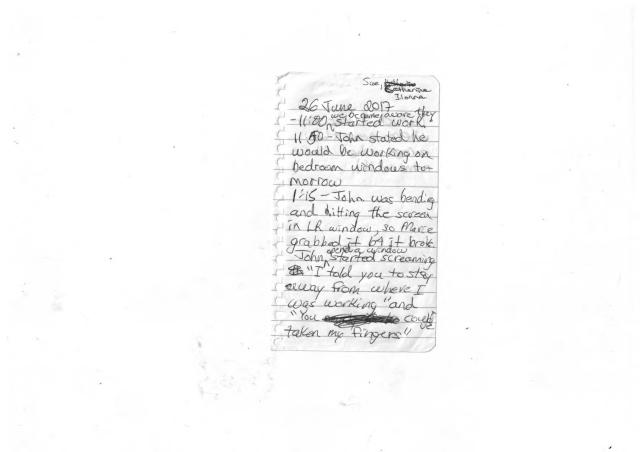 Sue, Catherine
Ilanna
26 June 2017
we became aware they
-11:00 started work.
11:50 - John stated he
would be working on
bedroom windows to-
morrow
1:15 - John was bending
and hitting the screen
in LR window, so Marie
grabbed it b4 it broke
opened window
John started screaming
"I told you to stay
away from where I
was working" and
"You could
've
taken my fingers"